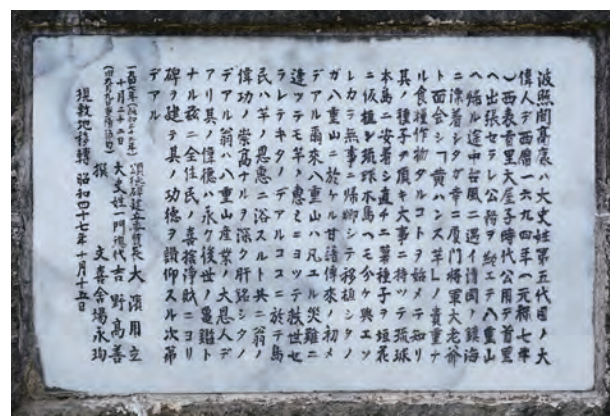 波照間高康ハ大史姓第五代目ノ大
偉人デ西暦一六九四年(元禄七年
)西表首里大屋子時代公用デ首里
ヘ出張セラレ公務ヲ終エテ八重山
ヘ帰ル途中台風ニ遇イ清国ノ鎮海
ニ漂着シタガ幸ニ厦門将軍大老爺
ト面会シ「黄ハンス芋」ノ貴重ナ
ル食糧作物ダルコトヲ始メテ知リ
其ノ種子ヲ頂キ大事ニ持ツテ琉球
本島ニ安着シ直チニ藷種子ヲ垣花
ニ仮植シ琉球本島ヘモ分ケ与エツ
レカラ無事ニ帰郷シテ移植シタノ
ガ八重山ニ於ケル甘藷傳来ノ初メ
デアル爾来八重山ハ凡ユル災難ニ
逢ツテモ芋ノ恵ミニヨツテ救世セ
ラレテキタノデアルココニ於テ島
民ハ芋ノ恩恵ニ浴スルト共ニ翁ノ
偉功ノ崇高ナルヲ深ク肝銘シタノ
デアル翁ハ八重山産業ノ大恩人デ
アリ其ノ偉德ハ永ク後世ノ亀鑑ト
ナル茲ニ全住民ノ喜捨浄財ニヨリ
碑ヲ建テ其ノ功德ヲ讃仰スル次第
デアル
十月二十二日 頌徳碑建立委員長 大濱用立
大史姓一門總代 吉野高善
撰 文 喜舎場永珣
現敷地移轉 昭和四十七年十月十五日